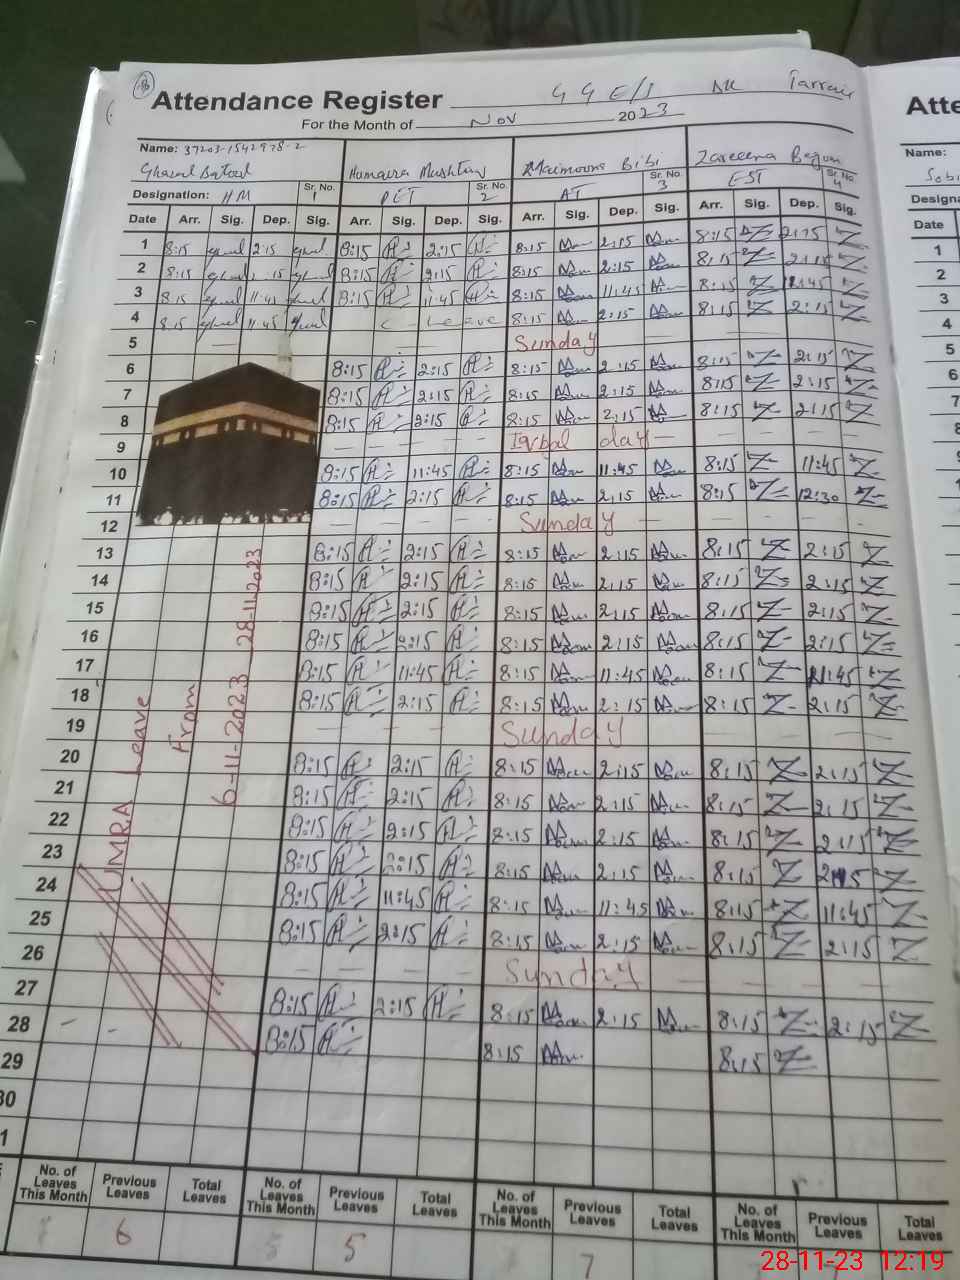 Attendance Register GGE/S
For the Month of Nov 2023
Name: 37203-1542978-2
Ghazal Batool Humaira Mushtaq Maimoona Bibi Zareena Begum
Designation: HM Sr. No. 1 PET Sr. No. 2 AT Sr. No. 3 EST Sr. No. 4
Date Arr. Sig. Dep. Sig. Arr. Sig. Dep. Sig. Arr. Sig. Dep. Sig. Arr. Sig. Dep. Sig.
1 8:15 2:15 8:15 2:15 8:15 2:15 8:15 2:15
2 8:15 2:15 8:15 2:15 8:15 2:15 8:15 2:15
3 8:15 11:45 8:15 11:45 8:15 11:45 8:15
4 8:15 11:45 C Leave 8:15 2:15 8:15 2:15
5 Sunday
6 8:15 2:15 8:15 2:15 8:15 2:15
7 8:15 2:15 8:15 2:15 8:15 2:15
8 8:15 2:15 8:15 2:15 8:15 2:15
9 Iqbal day
10 8:15 11:45 8:15 11:45 8:15 11:45
11 8:15 2:15 8:15 2:15 8:15 12:30
12 Sunday
13 8:15 2:15 8:15 2:15 8:15 2:15
14 8:15 2:15 8:15 2:15 8:15 2:15
15 8:15 2:15 8:15 2:15 8:15 2:15
16 8:15 2:15 8:15 2:15 8:15 2:15
17 8:15 11:45 8:15 11:45 8:15 11:45
18 8:15 2:15 8:15 2:15 8:15 2:15
19 Sunday
20 8:15 2:15 8:15 2:15 8:15 2:15
21 8:15 2:15 8:15 2:15 8:15 2:15
22 8:15 2:15 8:15 2:15 8:15 2:15
23 8:15 2:15 8:15 2:15 8:15 2:15
24 8:15 11:45 8:15 11:45 8:15 11:45
25 8:15 2:15 8:15 2:15 8:15 2:15
26 Sunday
27 8:15 2:15 8:15 2:15 8:15 2:15
28 8:15 8:15 8:15
29
30
1
UMRA Leave
From
6-11-2023 28-11-2023
No. of Leaves This Month Previous Leaves Total Leaves No. of Leaves This Month Previous Leaves Total Leaves No. of Leaves This Month Previous Leaves Total Leaves No. of Leaves This Month Previous Leaves Total Leaves
6 5 7
Atte
Name:
Designa
Date
1
2
3
4
5
6
7
28-11-23 12:19